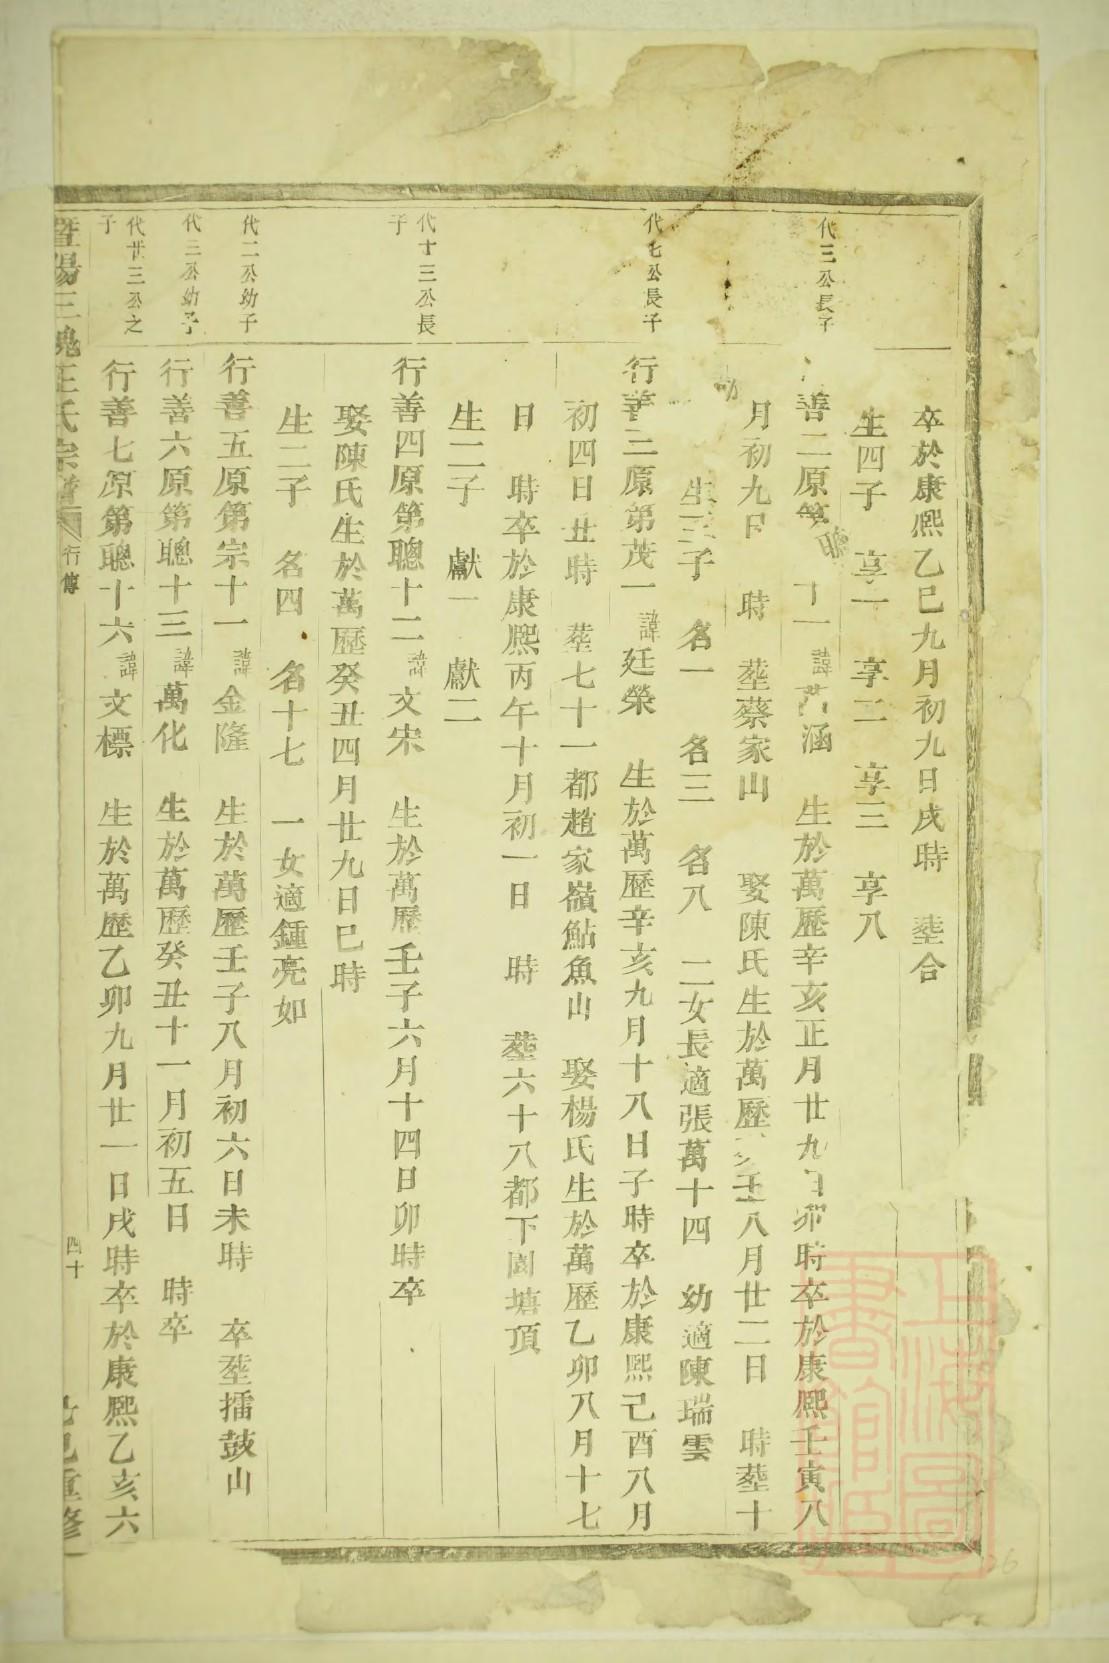 卒於康熙乙巳九月初九日戌時　塟合
生四子　享一　享二　享三　享八
代三公長子
善二原第聰十一 諱 涵　生於萬歷辛亥正月廿九日卯時卒於康熙壬寅八
月初九日　時　塟蔡家山　娶陳氏生於萬歷 壬 八月廿二日　時塟十
生三子　名一　名三　名八　二女長適張萬十四　幼適陳瑞雲
代七公長子
行善三原第茂一 諱廷榮　生於萬歷辛亥九月十八日子時卒於康熙己酉八月
初四日丑時　塟七十一都趙家嶺鮎魚山　娶楊氏生於萬歷乙卯八月十七
日　時卒於康熙丙午十月初一日　時　塟六十八都下園塘頂
生二子　獻一　獻二
代十三公長子
行善四原第聰十二 諱文宋　生於萬歷壬子六月十四日卯時卒
娶陳氏生於萬歷癸丑四月廿九日巳時
生二子　名四　名十七　一女適鍾亮如
代二公幼子
行善五原第宗十一 諱金隆　生於萬歷壬子八月初六日未時　卒塟擂鼓山
代三公幼子
行善六原第聰十三 諱萬化　生於萬歷癸丑十一月初五日　時卒
代廿三公之子
行善七原第聰十六 諱文標　生於萬歷乙卯九月廿一日戌時卒於康熙乙亥六
暨陽三槐王氏宗譜　行傳　四十　己巳重修
上海圖書館藏